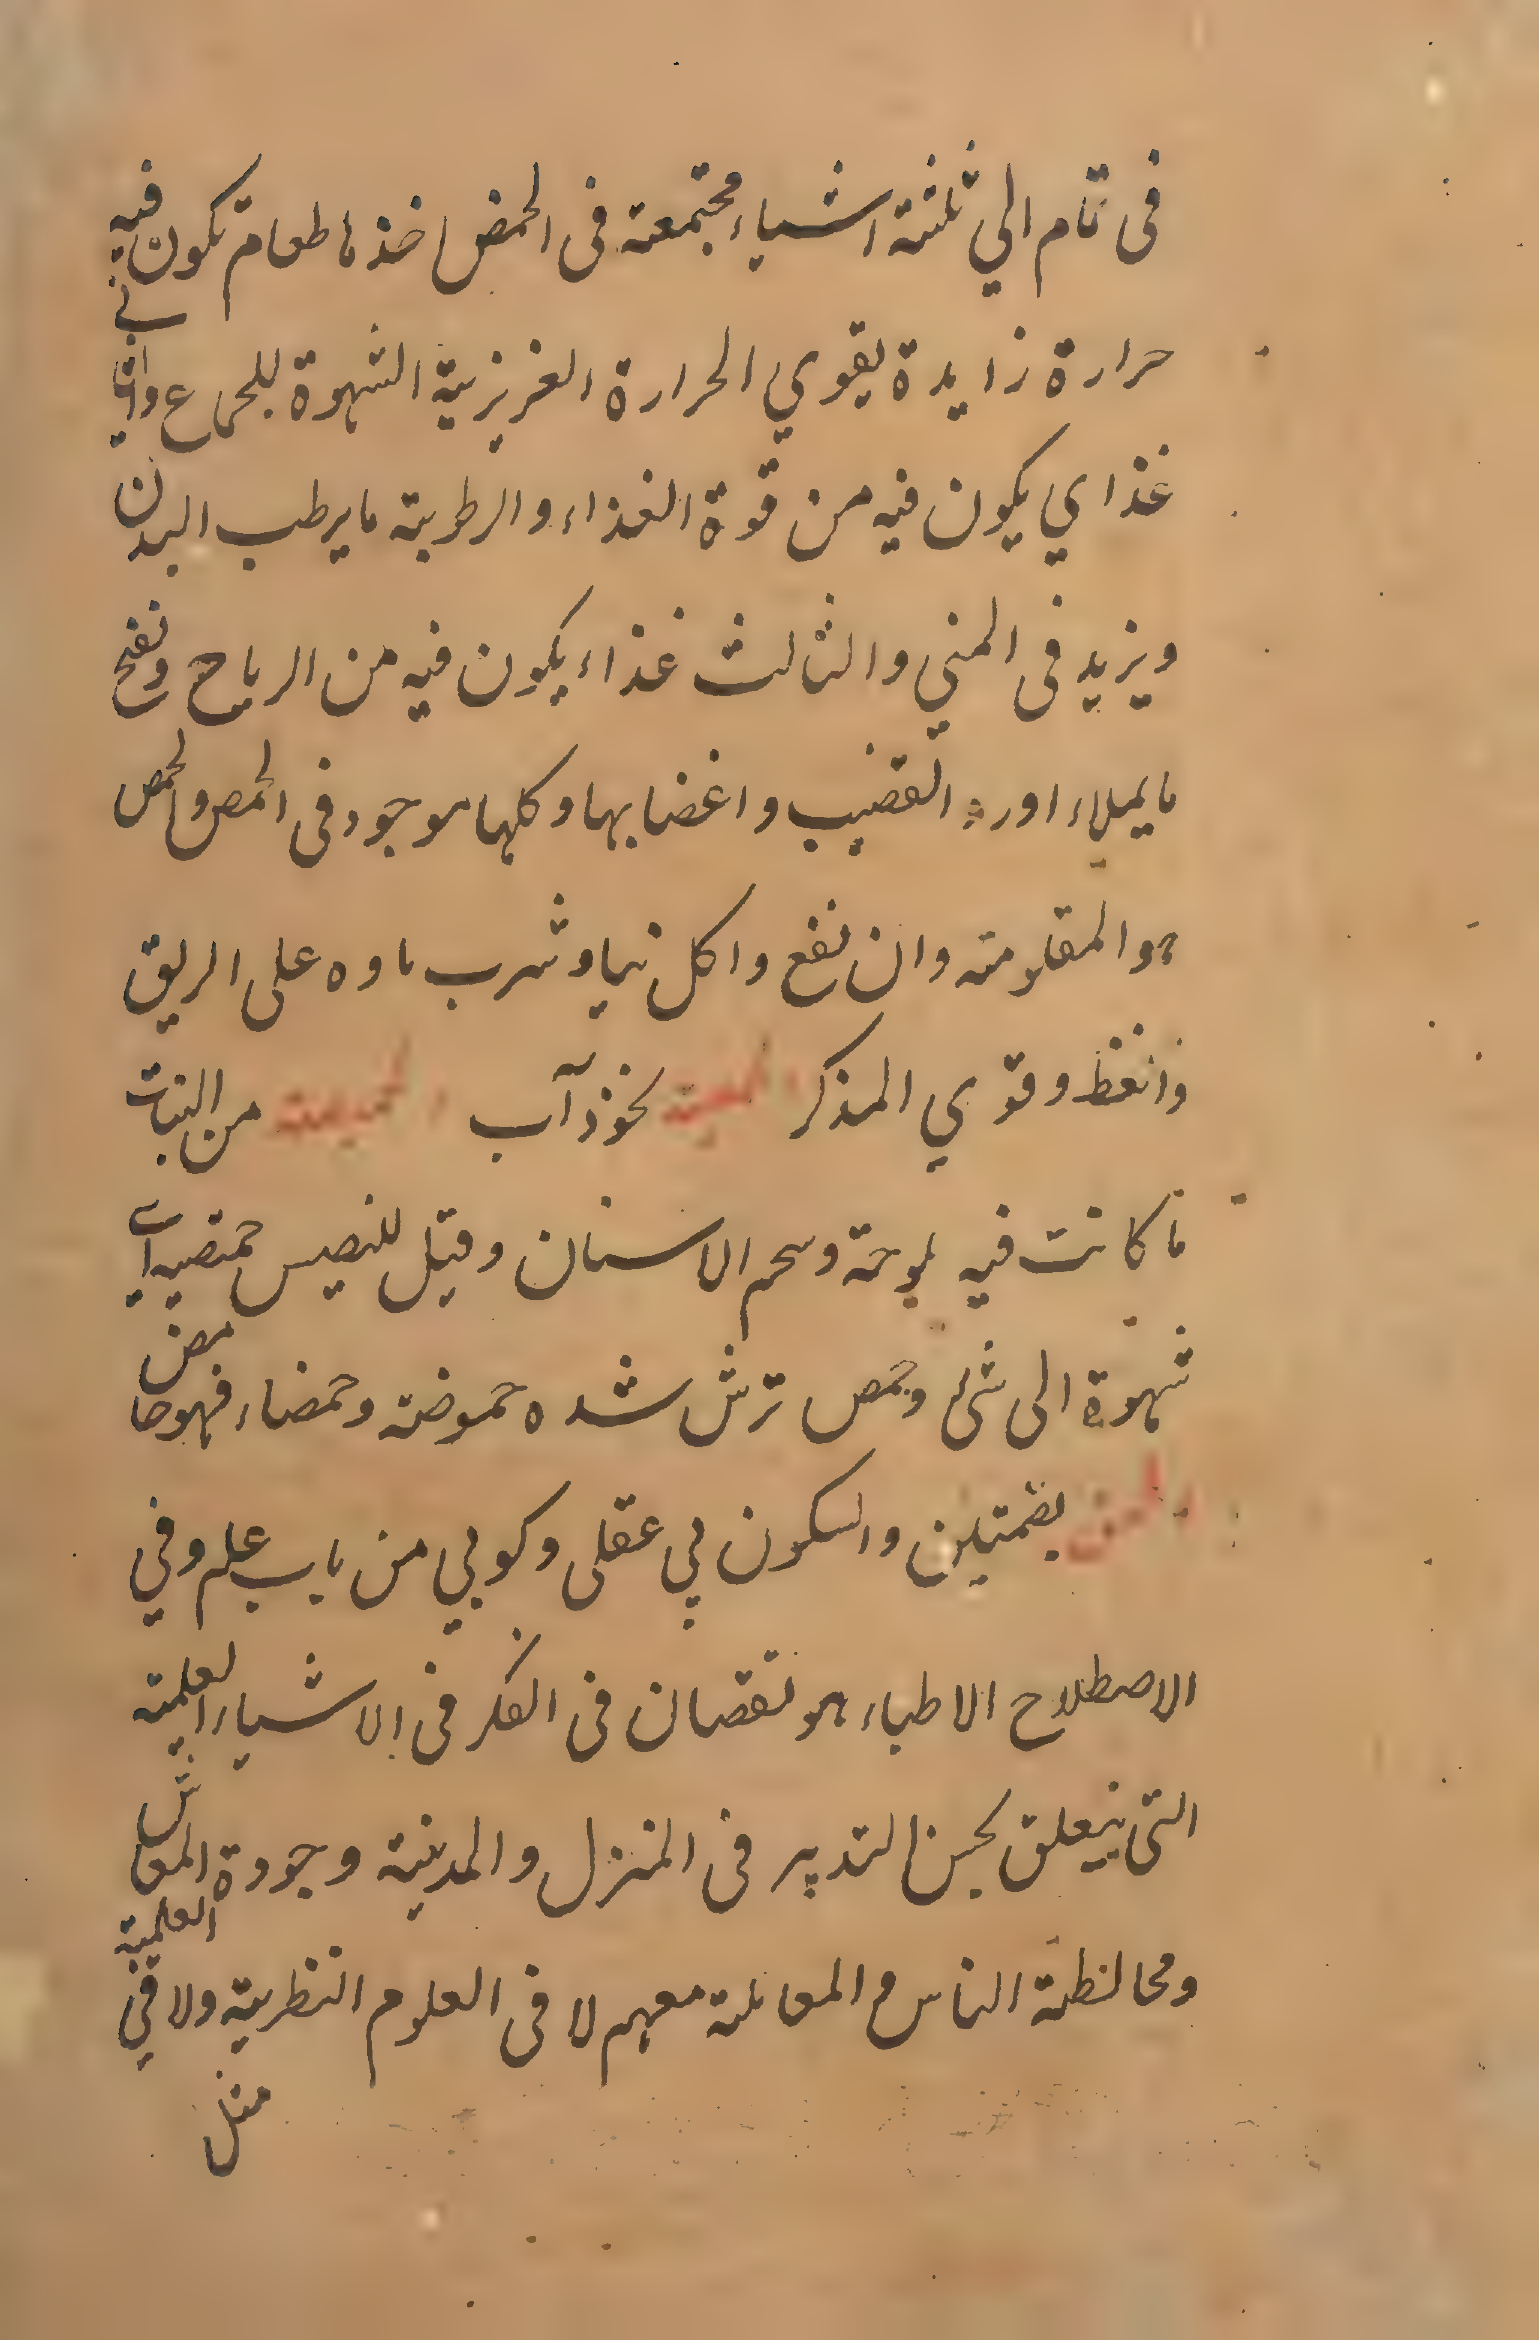 فى تمام الي ثلثة اشياء مجتمعة فى الحمض احدها طعام تكون فيه
حرارة زايدة يقوي الحرارة الغريزية الشهوة للجماع والثاني
غذاي يكون فيه من قوة الغذاء والرطوبة ما يرطب البدن
ويزيد فى المني والثالث غذاء يكون فيه من الرياح ونفخ
ما يملاء اورد القضيب واعضا بها وكلها موجود فى الحمص والحمص
هو المقلومة وان نفع واكل نيا وشرب ماوه على الريق
وانغظ وقوي المذكر نخودآب من النبات
ما كانت فيه لموحة وسحم الاسنان وقيل للنصيس حمضية اي
شهوة الى شئ وحمص ترش شده حموضة وحمضاء فهو حامض
بضمتين والسكون بي عقلى وكوبي من باب علم وفي
الاصطلاح الاطباء هو نقصان فى الفكر فى الاشياء العلمية
التى يتعلق بحسن التدبير فى المنزل والمدينة وجودة المعاش
ومخالطة الناس والمعاملة معهم لا فى العلوم النظرية ولا في العلمية
مثل